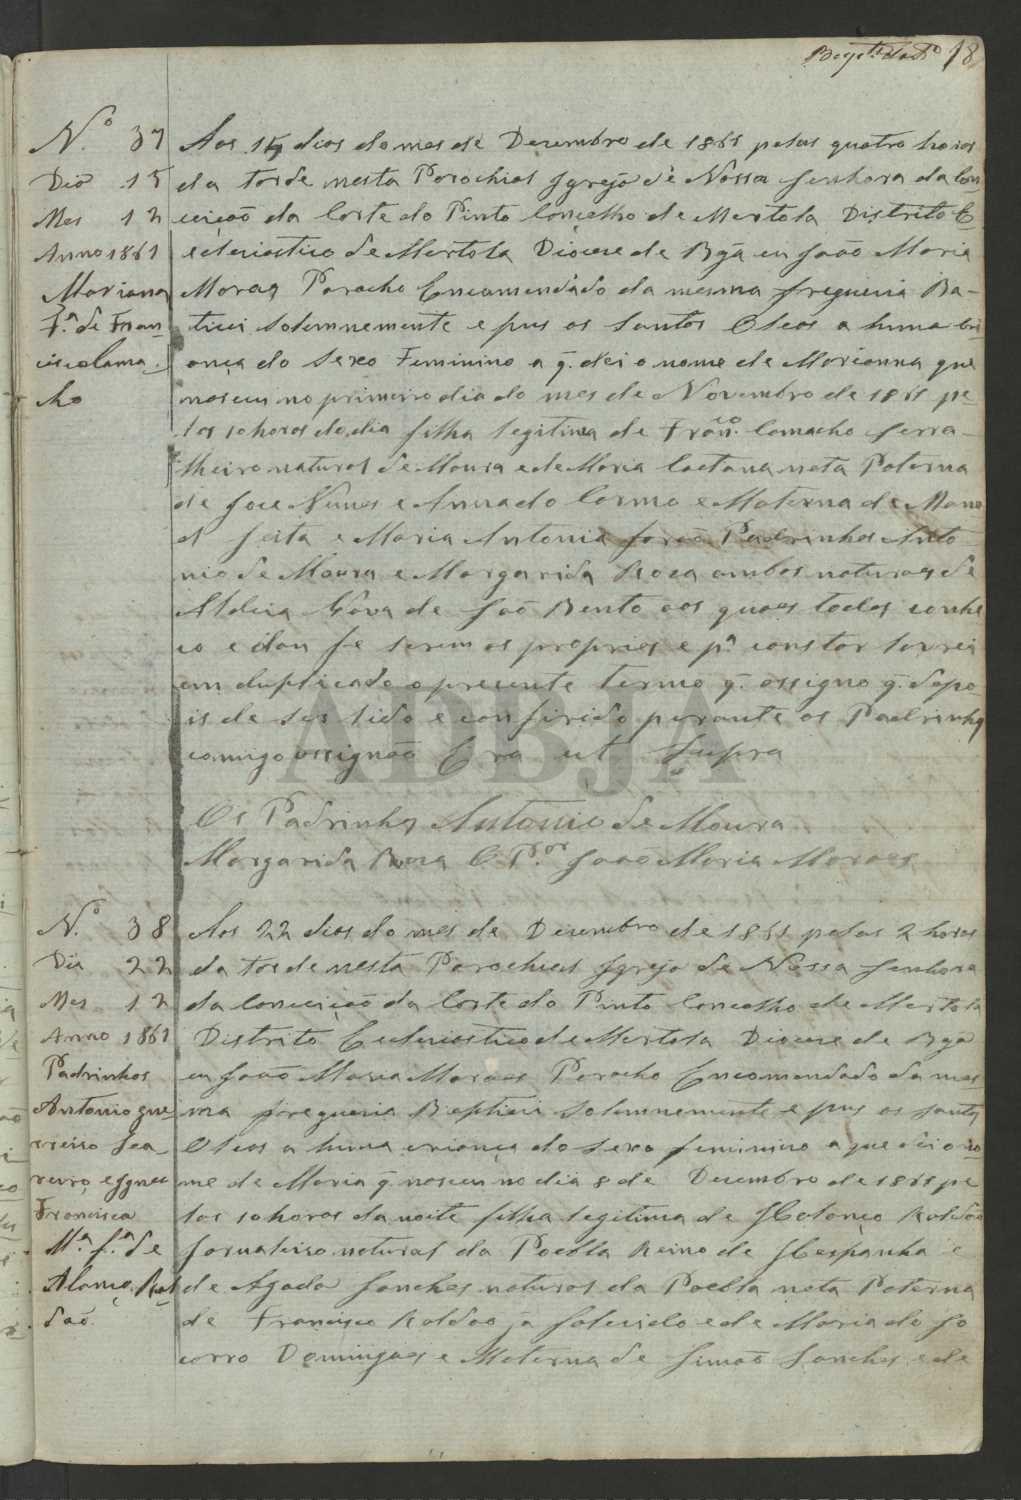 18
N.º 37
Dia 15
Mes 12
Anno 1861
Marianna
F.ª de Fran-
cisco Cama-
ho
Aos 15 dias do mes de Dezembro de 1861 pelas quatro horas
da tarde nesta Parochial Igreja de Nossa Senhora da Con-
ceição da Corte do Pinto Concelho de Mertola Districto E-
cclesiastico de Mertola Diocese de Bejá eu João Maria
Moraes Parocho Encomendado da mesma freguesia Ba-
ptizei solemnemente e pus os Santos Oleos a huma cri-
ança do sexo Feminino a q. dei o nome de Marianna que
nasceu no primeiro dia do mes de Novembro de 1861 pe-
las 10 horas do dia filha legitima de Fran.co Camacho serra-
lheiro natural de Moura e de Maria Caetana neta Paterna
de Jose Nunes e Anna do Carmo e Materna de Mano
el Seita e Maria Antonia forão Padrinhos Anto
nio de Moura e Margarida Roza ambos naturaes de
Aldeia Nova de São Bento aos quaes todos conhe
ço e dou fe serem os proprios e p.ª constar lavrei
em duplicado o presente termo q. assigno q. depo-
is de ser lido e confirido perante os Padrinhos
comigo assignão Era ut Supra
Os Padrinhos Antonio de Moura
Margarida Roza O P.or João Maria Moraes
N.º 38
Dia 22
Mes 12
Anno 1861
Padrinhos
Antonio gue
rreiro Sea
reiro e Ignez
Francisca
M.ª f.ª de
Alonço Rol
dão
Aos 22 dias do mes de Dezembro de 1861 pelas 2 horas
da tarde nesta Parochial Igreja de Nossa Senhora
da Conceição da Corte do Pinto Concelho de Mertola
Districto Ecclesiastico de Mertola Diocese de Bejá
eu João Maria Moraes Parocho Encomendado da mes-
ma freguesia Baptizei solemnemente e pus os santos
Oleos a huma criança do sexo feminino a que dei o no-
me de Maria q. nasceu no dia 8 de Dezembro de 1861 pe
las 10 horas da noite filha legitima de Holonço Roldão
jornaleiro natural da Poebla Reino de Hespanha e
de Agada Sanches natural da Poebla neta Paterna
de Francisco Roldão já falecido e de Maria do So
corro Domingues e Materna de Simão Sanches e de
ADBJA